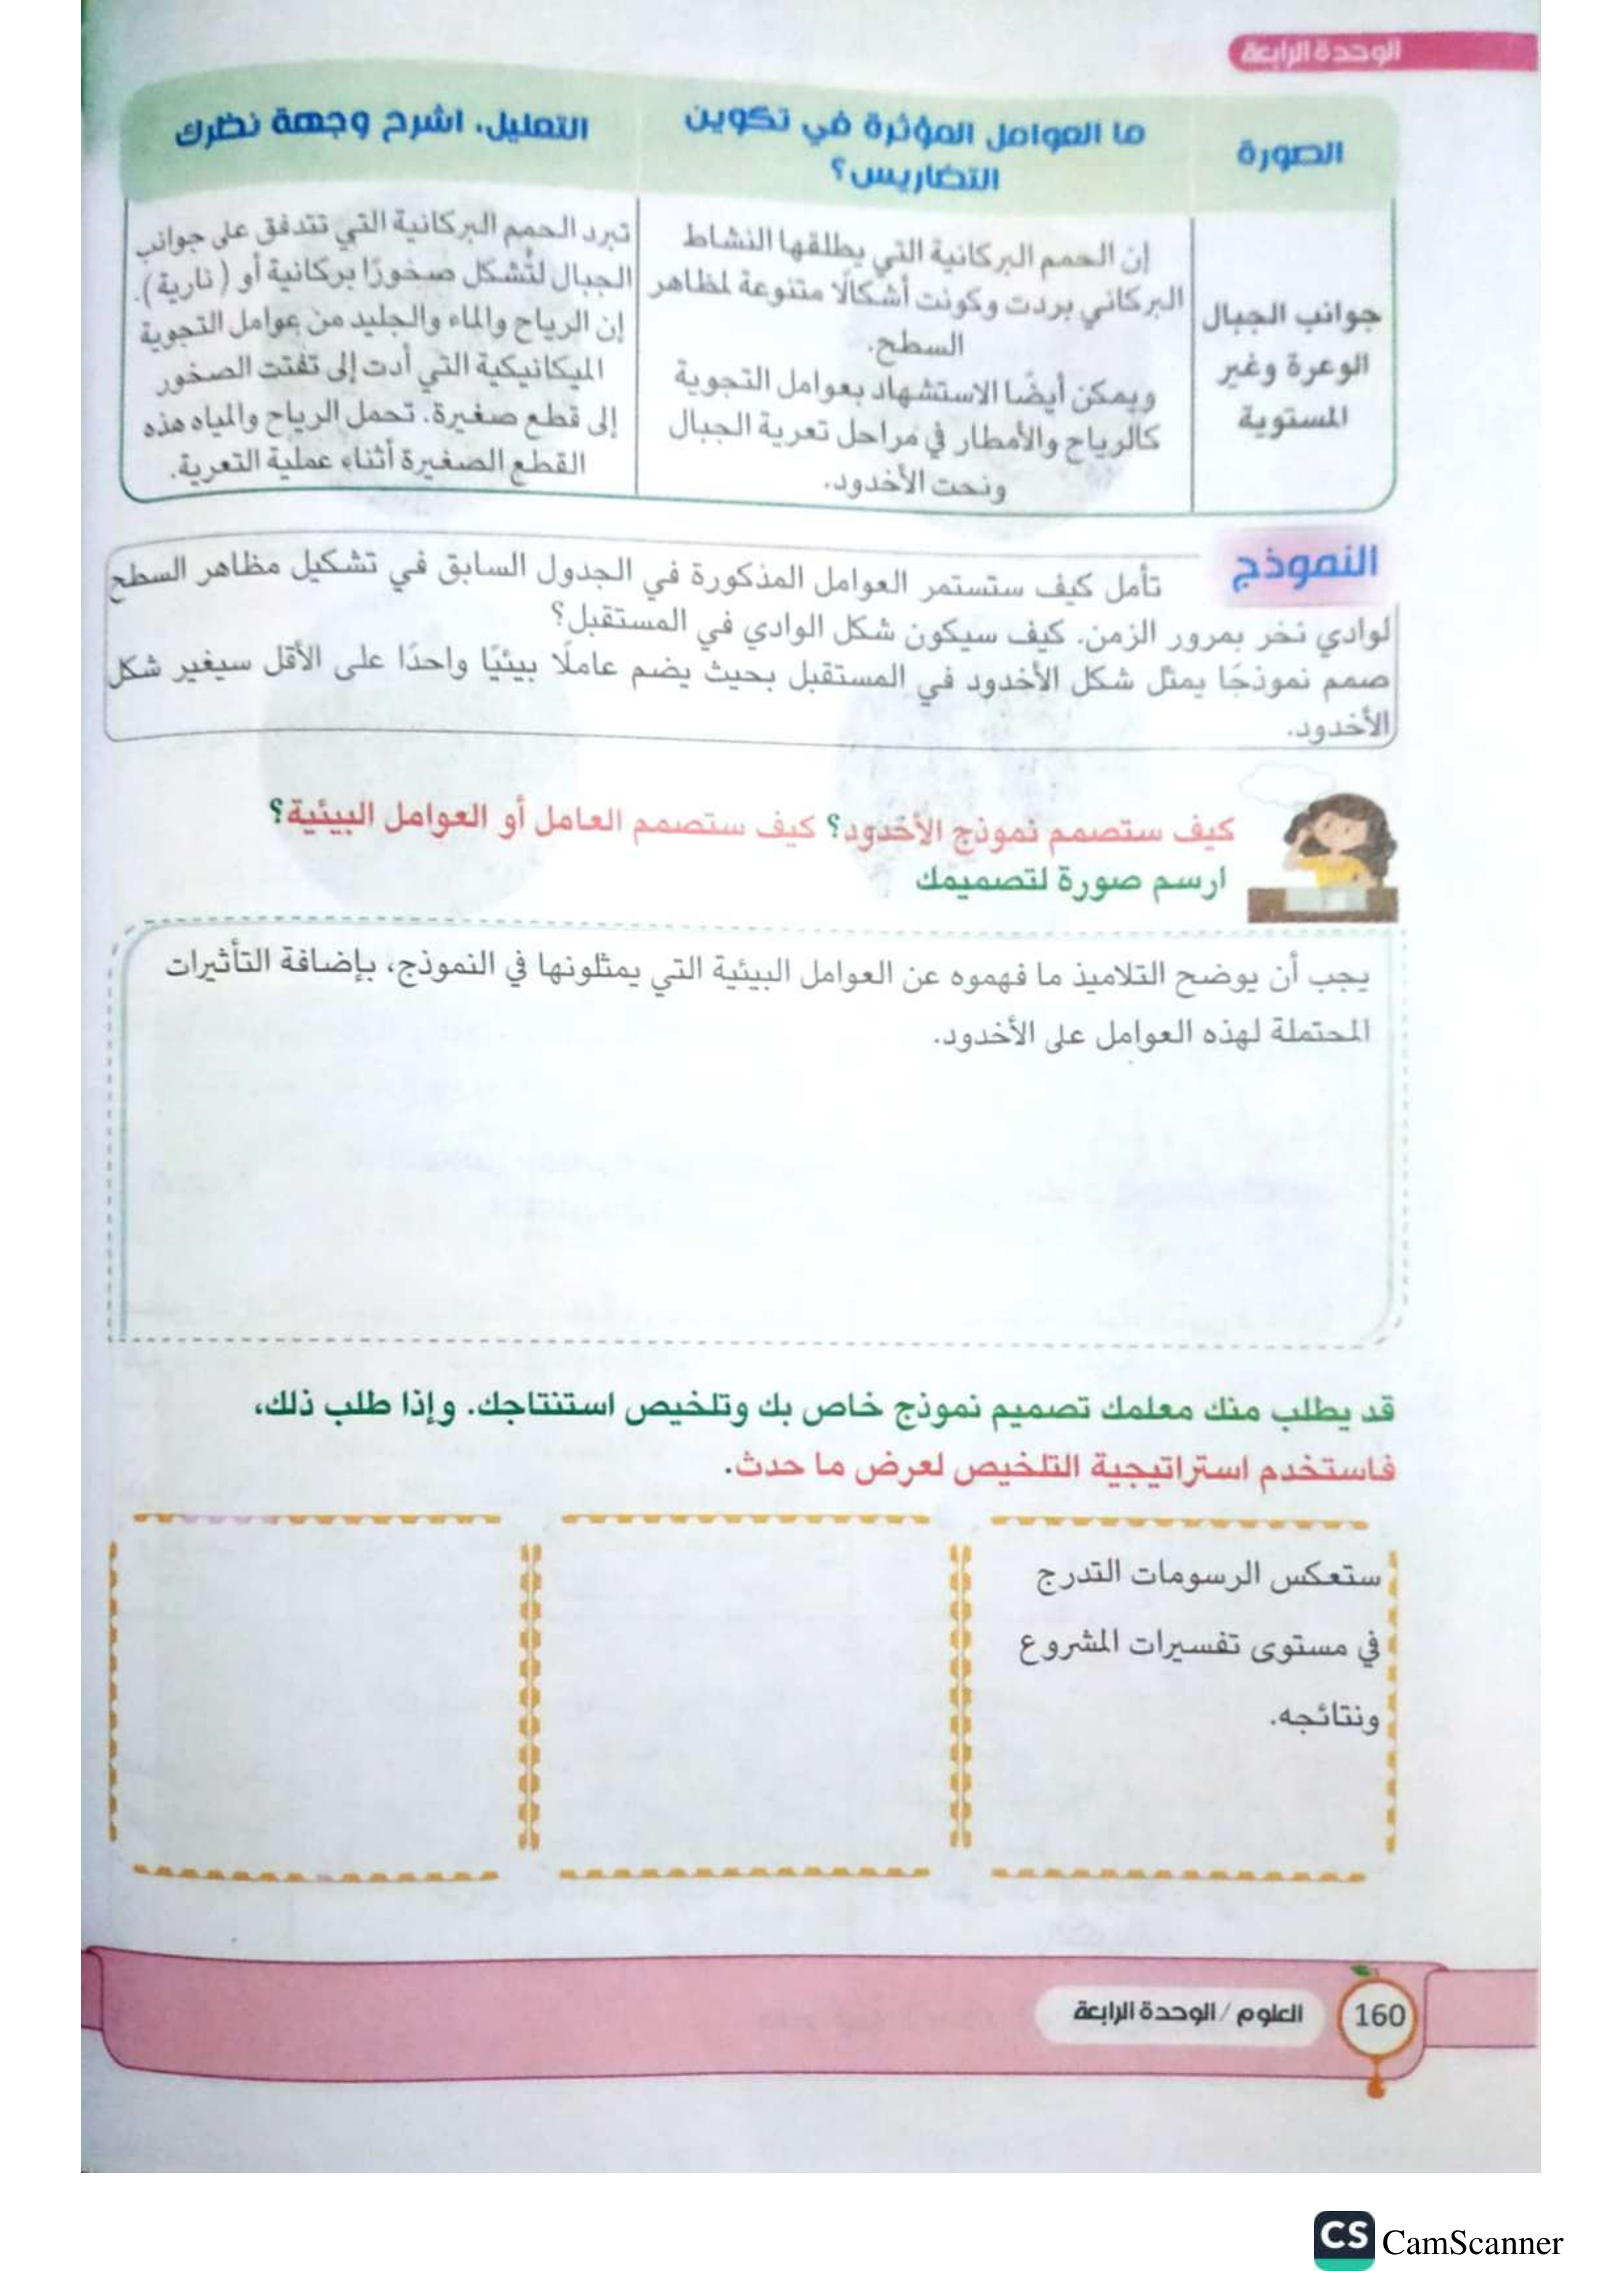 الوحدة الرابعة
الصورة
ما العوامل المؤثرة في تكوين
التضاريس؟
التعليل، اشرح وجهة نظرك
جوانب الجبال
الوعرة وغير
المستوية
إن الحمم البركانية التي يطلقها النشاط
البركاني بردت وكونت أشكالًا متنوعة لمظاهر
السطح.
ويمكن أيضًا الاستشهاد بعوامل التجوية
كالرياح والأمطار في مراحل تعرية الجبال
ونحت الأخدود.
تبرد الحمم البركانية التي تتدفق على جوانب
الجبال لتُشكل صخورًا بركانية أو (نارية).
إن الرياح والماء والجليد من عوامل التجوية
الميكانيكية التي أدت إلى تفتت الصخور
إلى قطع صغيرة. تحمل الرياح والمياه هذه
القطع الصغيرة أثناء عملية التعرية.
النموذج
تأمل كيف ستستمر العوامل المذكورة في الجدول السابق في تشكيل مظاهر السطح
لوادي نخر بمرور الزمن. كيف سيكون شكل الوادي في المستقبل؟
صمم نموذجًا يمثل شكل الأخدود في المستقبل بحيث يضم عاملًا بيئيًا واحدًا على الأقل سيغير شكل
الأخدود.
كيف ستصمم نموذج الأخدود؟ كيف ستصمم العامل أو العوامل البيئية؟
ارسم صورة لتصميمك
يجب أن يوضح التلاميذ ما فهموه عن العوامل البيئية التي يمثلونها في النموذج، بإضافة التأثيرات
المحتملة لهذه العوامل على الأخدود.
قد يطلب منك معلمك تصميم نموذج خاص بك وتلخيص استنتاجك. وإذا طلب ذلك،
فاستخدم استراتيجية التلخيص لعرض ما حدث.
ستعكس الرسومات التدرج
في مستوى تفسيرات المشروع
ونتائجه.
160
العلوم / الوحدة الرابعة
CS CamScanner